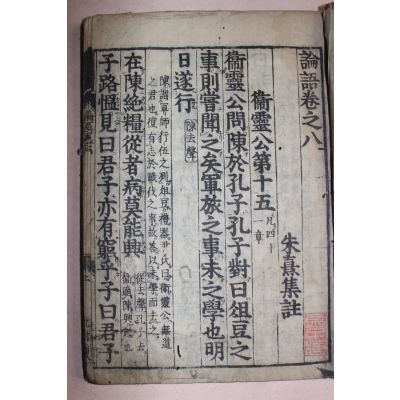 論語卷之八
朱熹集註
衞靈公第十五 凡四十一章
衞靈公問陳於孔子孔子對曰俎豆之
事則嘗聞之矣軍旅之事未之學也明
日遂行 陳去聲
陳謂軍師行伍之列俎豆禮器尹氏曰衞靈公無道
之君也復有志於戰伐之事故答以未學而去之
在陳絶糧從者病莫能興 從去聲孔子去衞適陳興起也
子路慍見曰君子亦有窮乎子曰君子